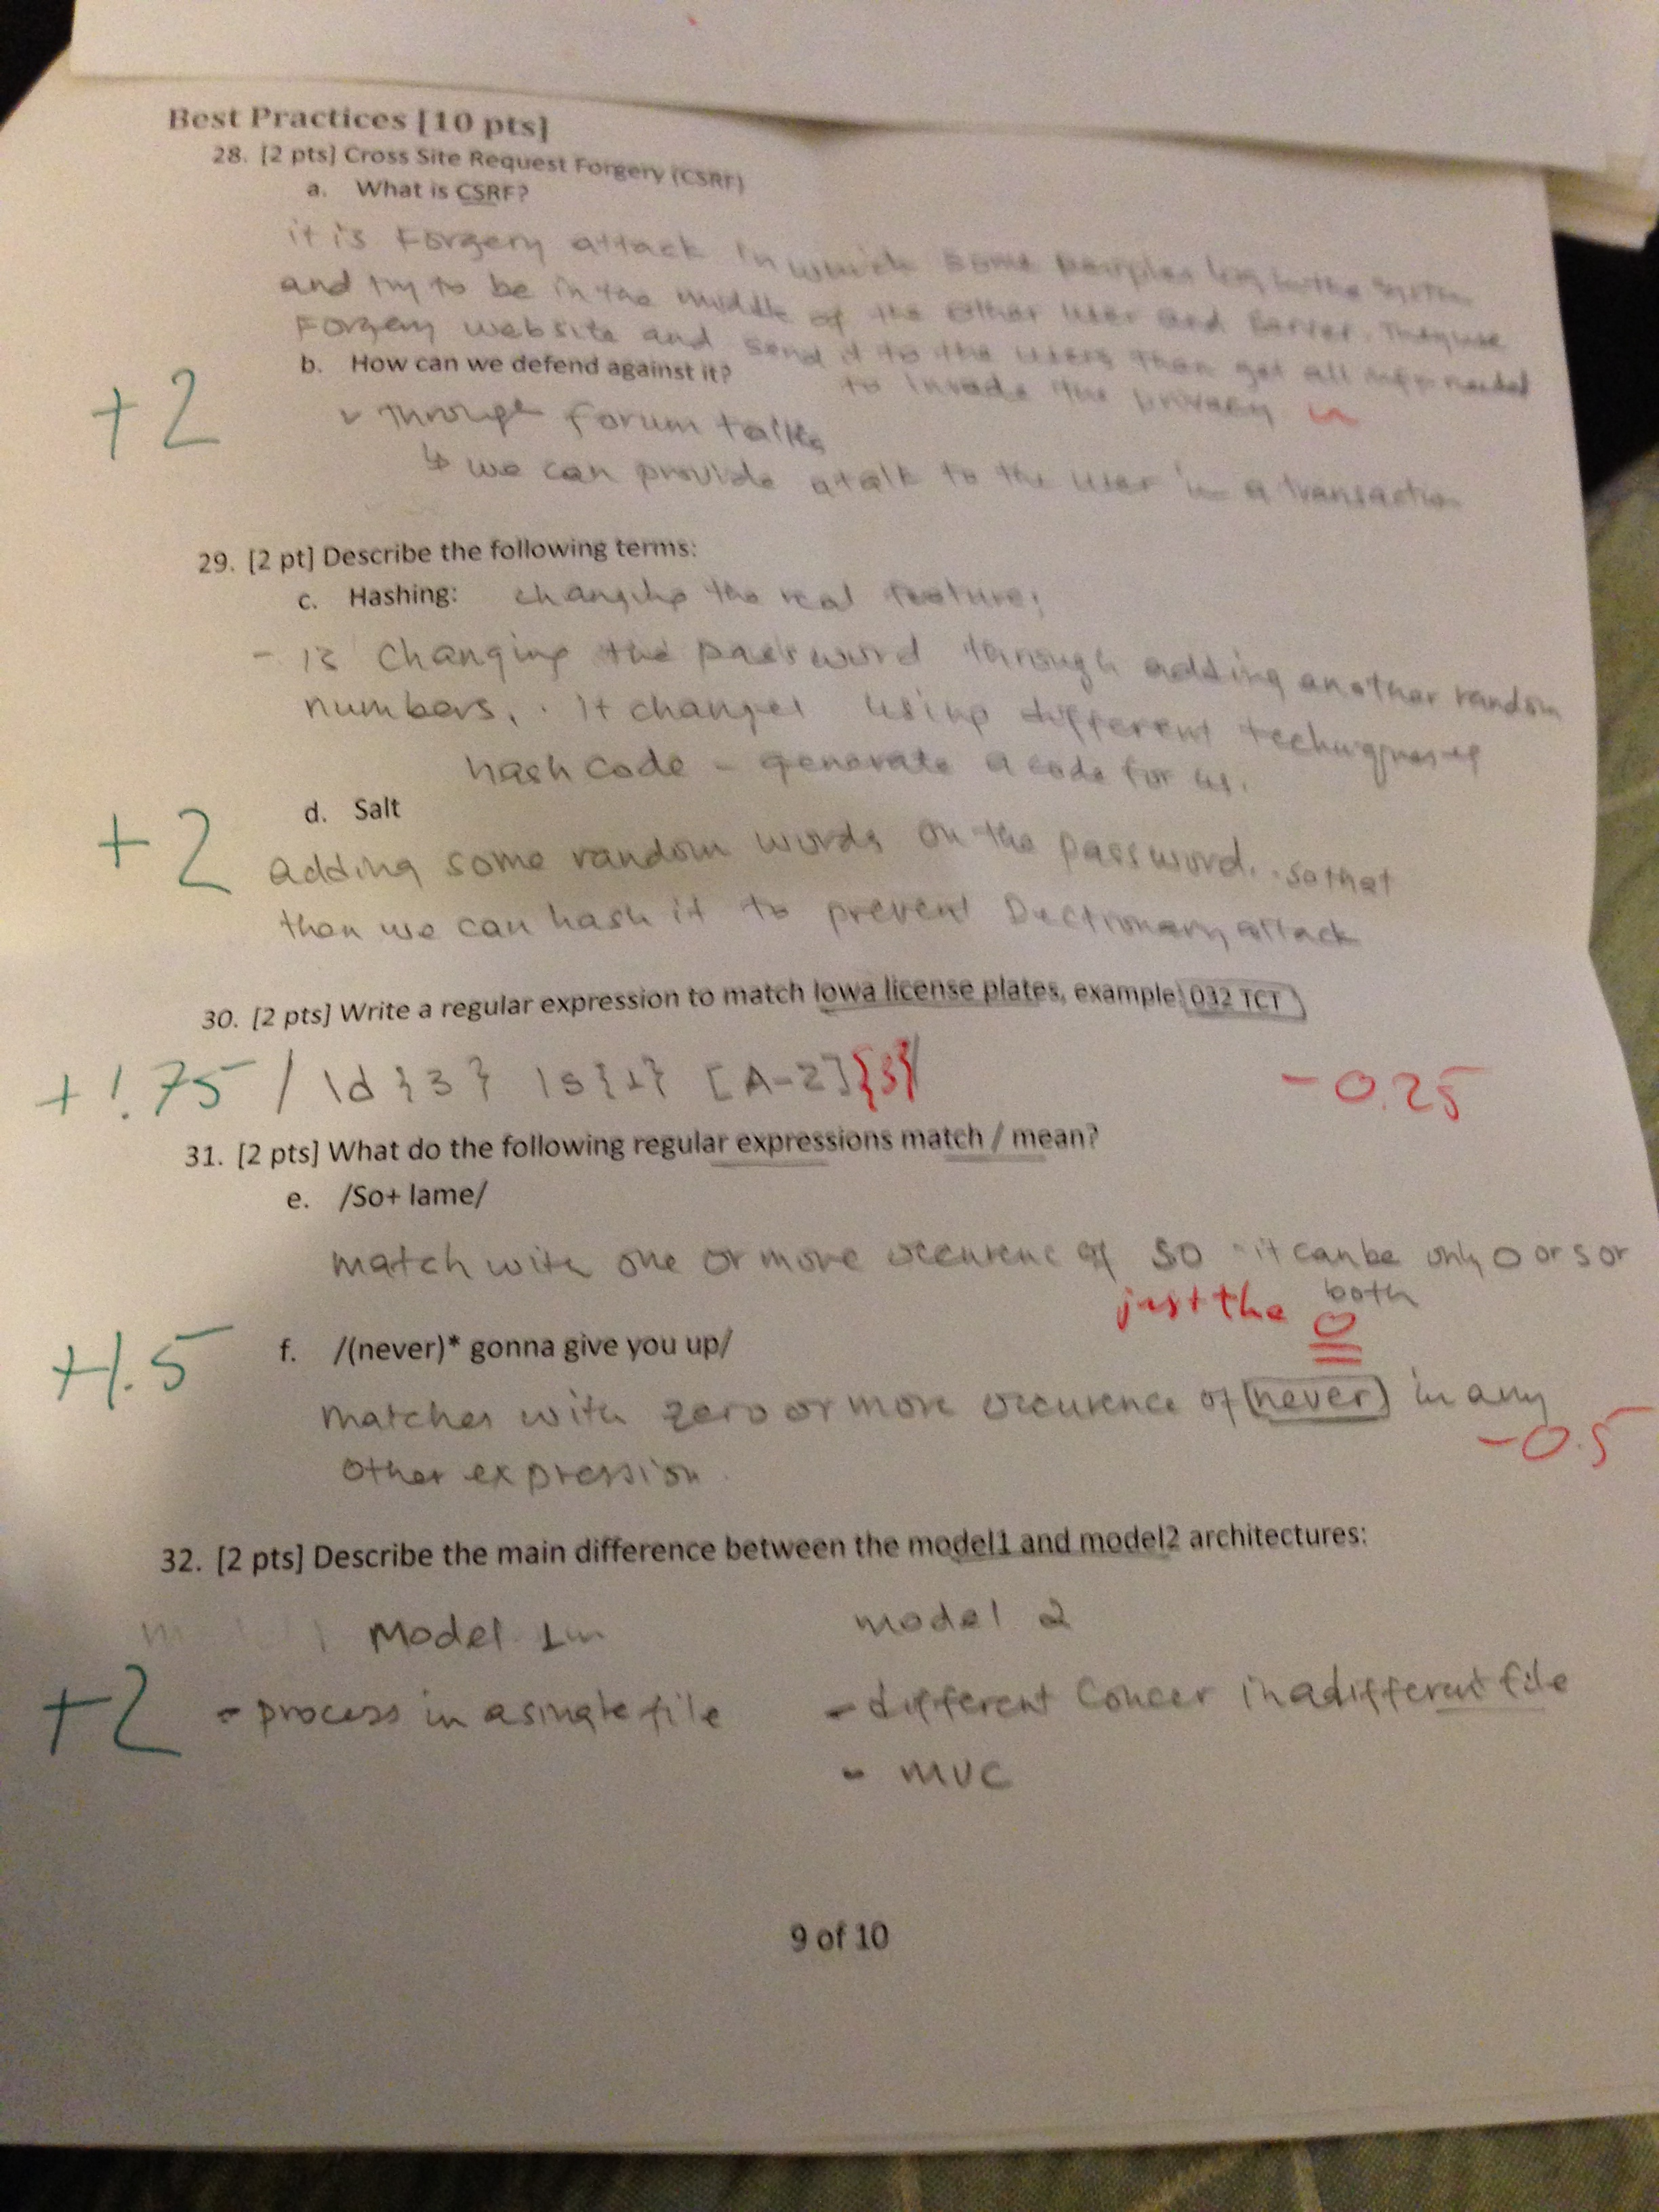 Best Practices [10 pts]
28. [2 pts] Cross Site Request Forgery (CSRF)
a. What is CSRF?
it is Forgery attack in which some log in the system
and try to be in the middle of the other user and server. They use
Forgery website and send it to the users then get all info needed
to invade the privacy
b. How can we defend against it?
+2
Through forum talks
↳ we can provide a talk to the user in a transaction
29. [2 pt] Describe the following terms:
c. Hashing: changing the real feature;
- is changing the password through adding another random
numbers, . it changes using different techniques of
hash code - generate a code for us.
d. Salt
+2
adding some random words on the password. . so that
then we can hash it to prevent Dectionary attack
30. [2 pts] Write a regular expression to match Iowa license plates, example 032 TCT
+1.75 / \d {3} \s{1} [A-Z]{3}/ -0.25
31. [2 pts] What do the following regular expressions match / mean?
e. /So+ lame/
match with one or more of so - it can be only o or s or
both
just the o
+1.5
f. /(never)* gonna give you up/
matches with zero or more occurence of (never) in any
-0.5
other expression
32. [2 pts] Describe the main difference between the model1 and model2 architectures:
Model 1 model 2
+2 - process in a single file - different Concer in a different file
- MVC
9 of 10